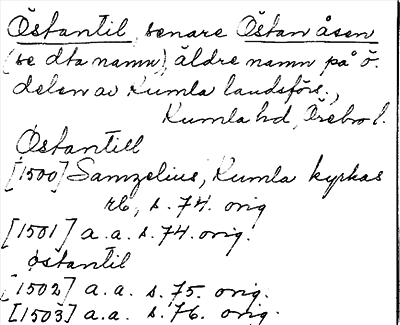 Östantil, senare Östanåsen
(se dta namn), äldre namn på ö.
delen av Kumla landsförs.,
Kumla hd, Örebro l.
Östantill
[1500] Samzelius, Kumla kyrkas
rb, s. 74. orig
[1501] a.a. s. 74. orig.
östantil
[1502] a.a. s. 75. orig.
[1503] a.a. s. 76. orig.